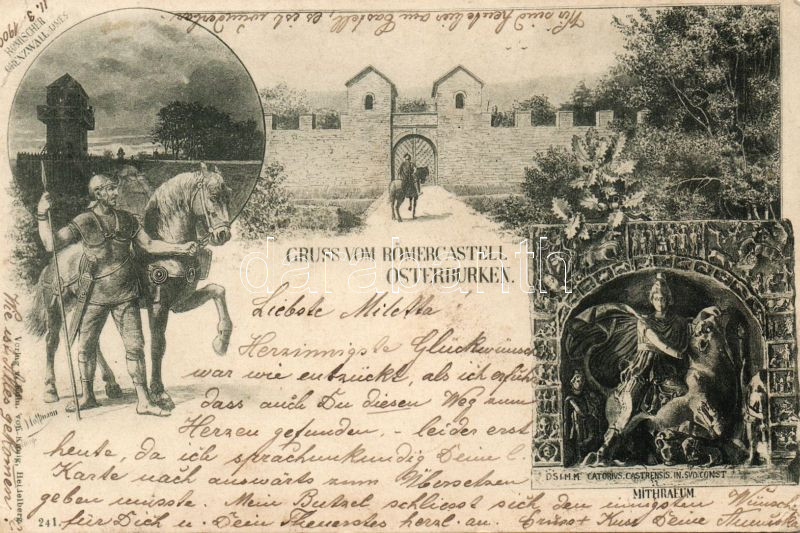 11. 3. 1900
Wir sind heute hier am Castell, es ist wunderbar.
RÖMISCHER
GRENZWALL LIMES
GRUSS VOM RÖMERCASTELL
OSTERBURKEN.
Liebste Miletta
Herzinnigste Glückwünsch
war wie entzückt, als ich erfuhr
dass auch Du diesen Weg zum
Herzen gefunden, - leider erst
heute, da ich sprachunkundig Deine l.
Karte nach auswärts zum Übersetzen
geben musste. Mein Butzel schliesst sich den innigsten Wünsche
für Dich u. Dein Theuerstes herzl. an. Gruss + Kuss Deine
D·S·I·M·M CATORIVS. CASTRENSIS. IN. SVO. CONST
MITHRAEUM.
J. Hoffmann
Verlag von König, Heidelberg.
241.
Wie ist Alles gekommen?
darabanth